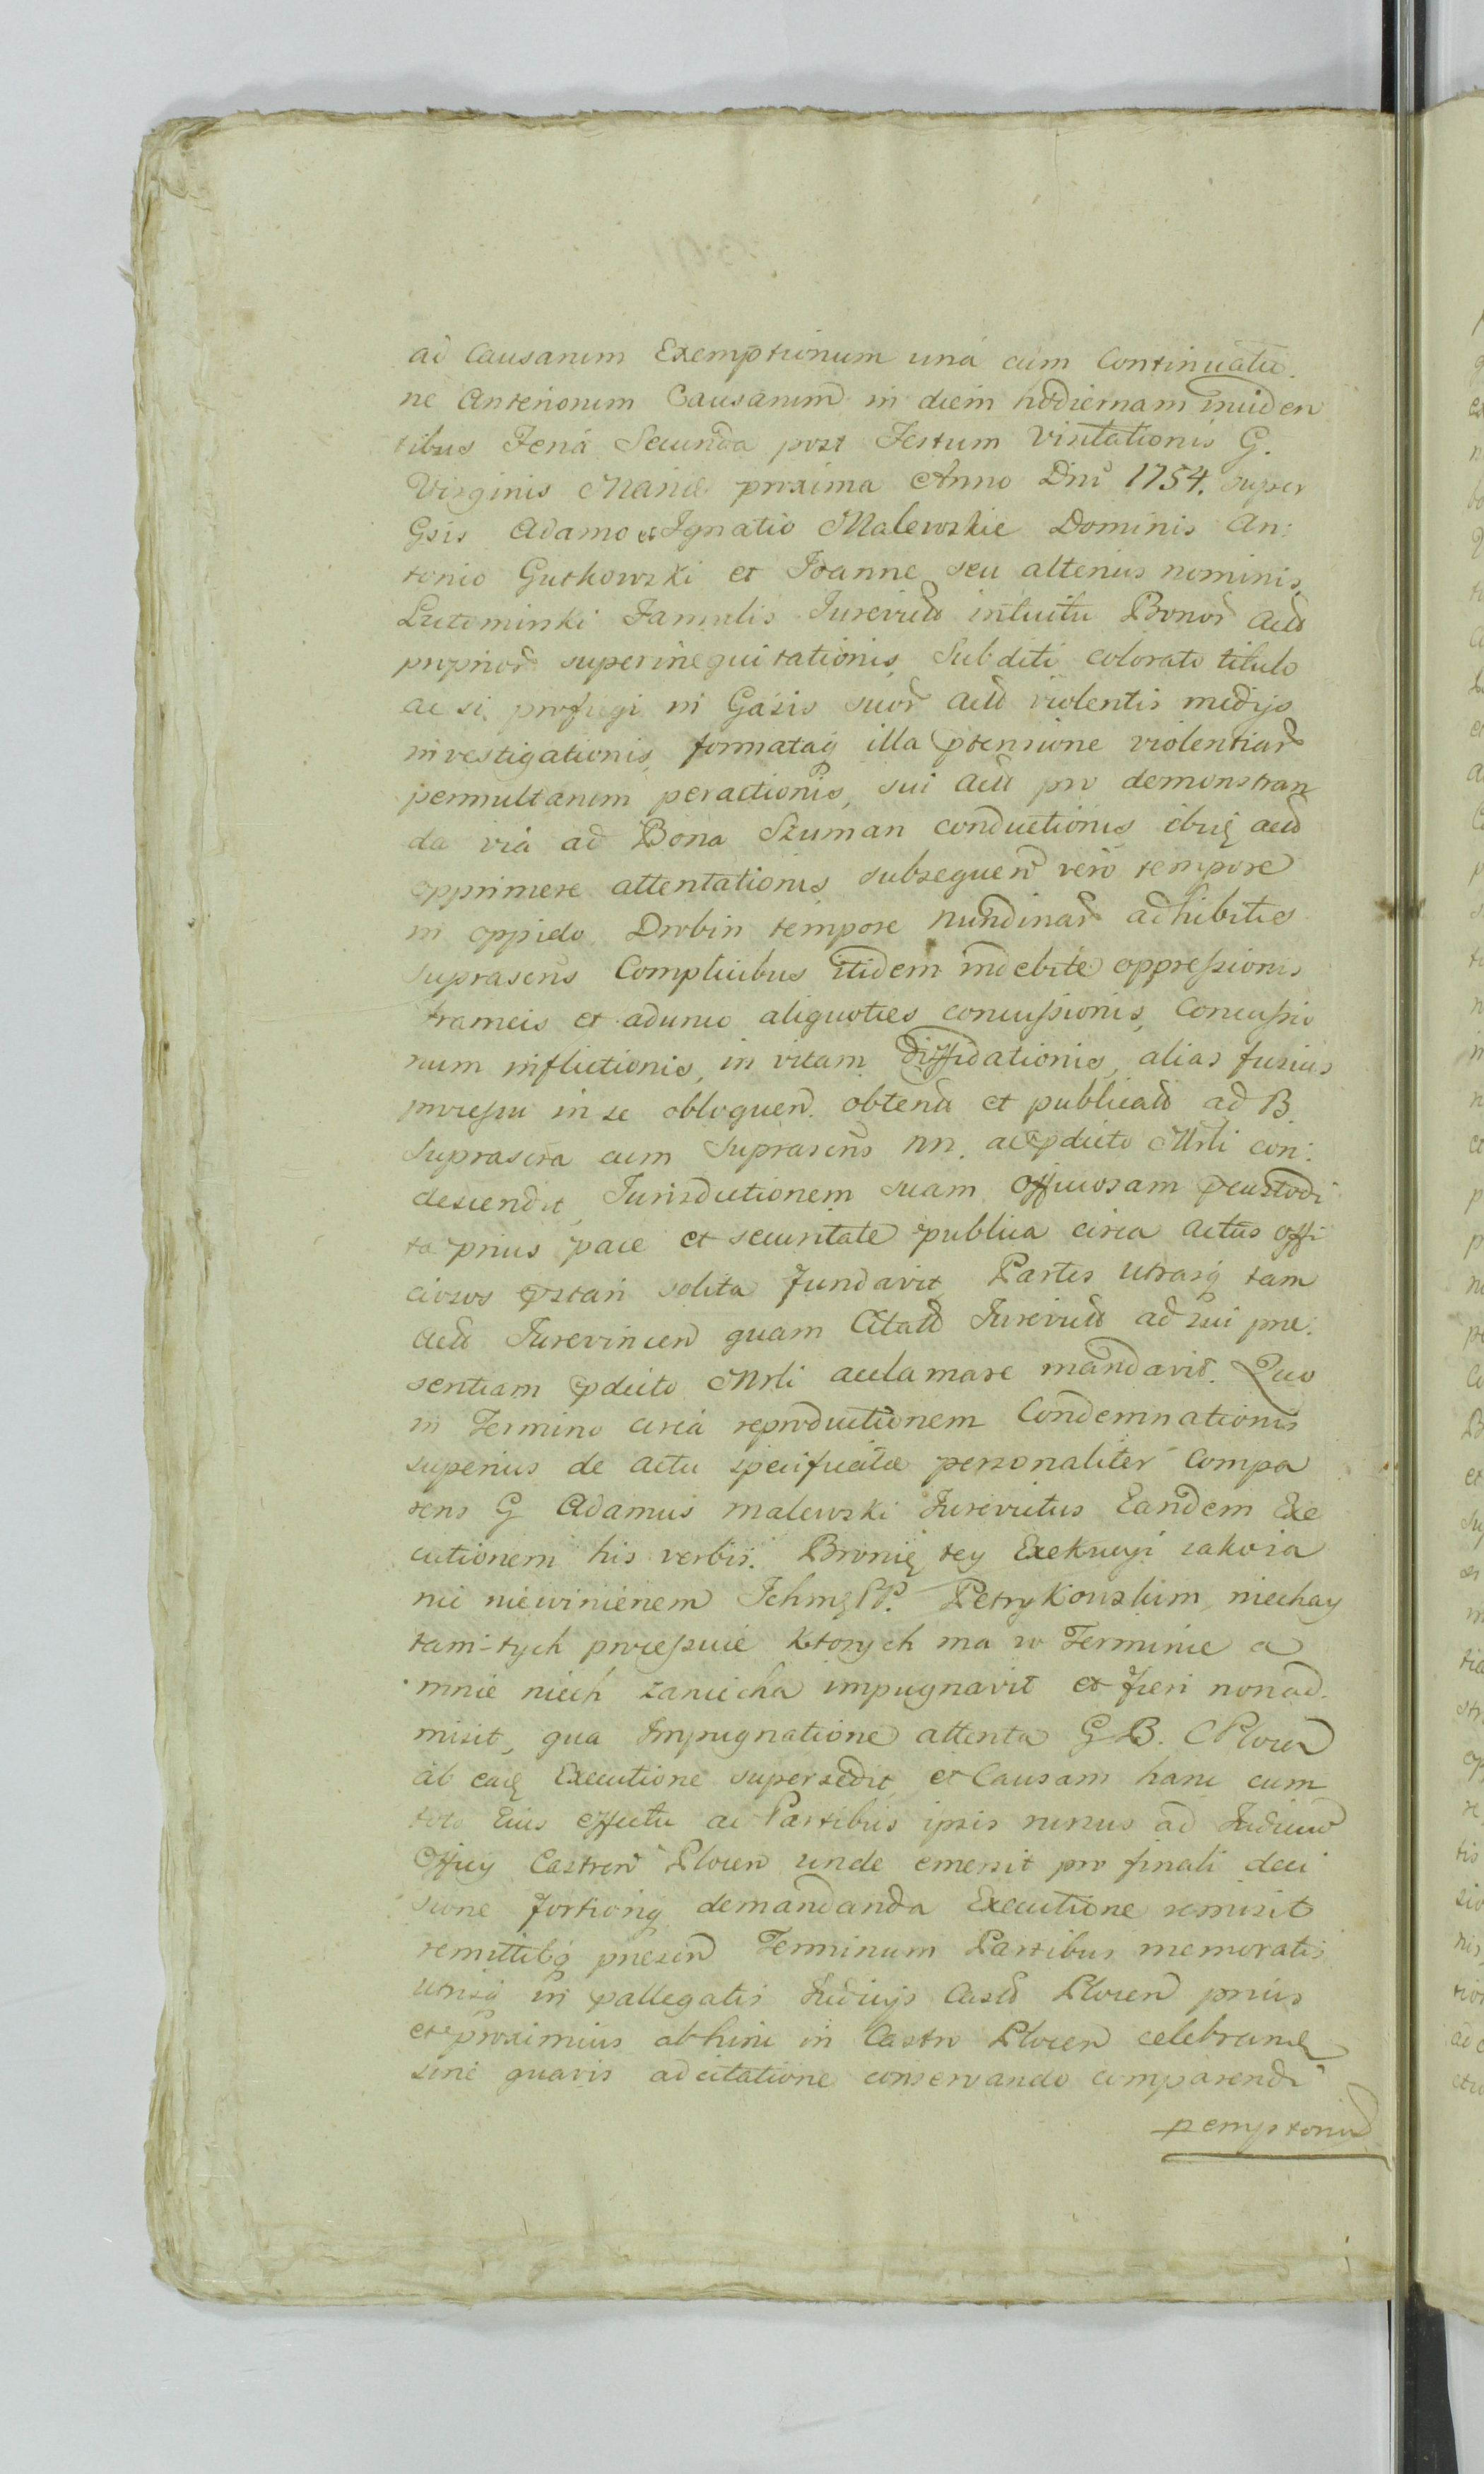 ad Causarum Exemptionum una cum Continuatio
ne Anteriorum Causarum in diem hodiernam inciden
tibus Feria Secunda post Festum Visitationis G.
Virginis Mariæ proxima Anno Dni 1754. super
Gsis Adamo et Ignatio Malewskie Dominis An:
tonio Gutkowski et Joanne seu alterius nominis
Lutominski Famulis Jurevict intuitu Bonor Act
proprior superinequitationis, Subditi colorato titulo
ac si profugi in Gazis suor Act violentis medijs
investigationis, formataq illa ptensione violentiar
permultarum peractionis, sui Act pro demonstran
da via ad Bona Szuman conductionis ibiq act
opprimere attentationis, subsequen vero tempore
in oppido Drobin tempore nundinar adhibitis
suprascris Complicibus itidem indebite oppressionis
frameis et adunco aliquoties concussionis, Concussio
num inflictionis, in vitam diffidationis, alias fusius
processu in se obloquen obtent et publicat ad B.
Suprascra cum Suprascris nn. ac pdicto Mrli con:
descendit, Jurisdictionem suam Officiosam pcustodi
ta prius pace et securitate publica circa actus offi
ciosos pstari solita fundavit, Partes utrasq tam
Act Jurevincen quam Citat Jurevict ad sui præ:
sentiam pdicto Mrli acclamare mandavit. Quo
in Termino circa reproductionem Condemnationis
superius de actu specificatæ personaliter Compa
rens G Adamus Malewski Jurevictus Eandem Exe
cutionem his verbis. Bronię tey Exekucyi iako ia
nic niewinienem Jchmę PP. Petrykowskim, niechay
tam-tych processuie ktorych ma w Terminie a
mnie niech zaniecha impugnavit et fieri non ad
misit, qua Impugnatione attenta G B. Plocen
ab eaq Executione supersedit, et Causam hanc cum
toto Eius effectu ac Partibus ipsis rursus ad Judicium
Officij Castren Plocen unde emersit pro finali deci
sione fortioriq demandanda Executione remisit
remittitq præsen Terminum Partibus memoratis
utrisq in pallegatis Judicijs Cast Plocen prius
et proximius abhinc in Castro Plocen celebran
sine quavis adcitatione conservando comparendi
pemptorium